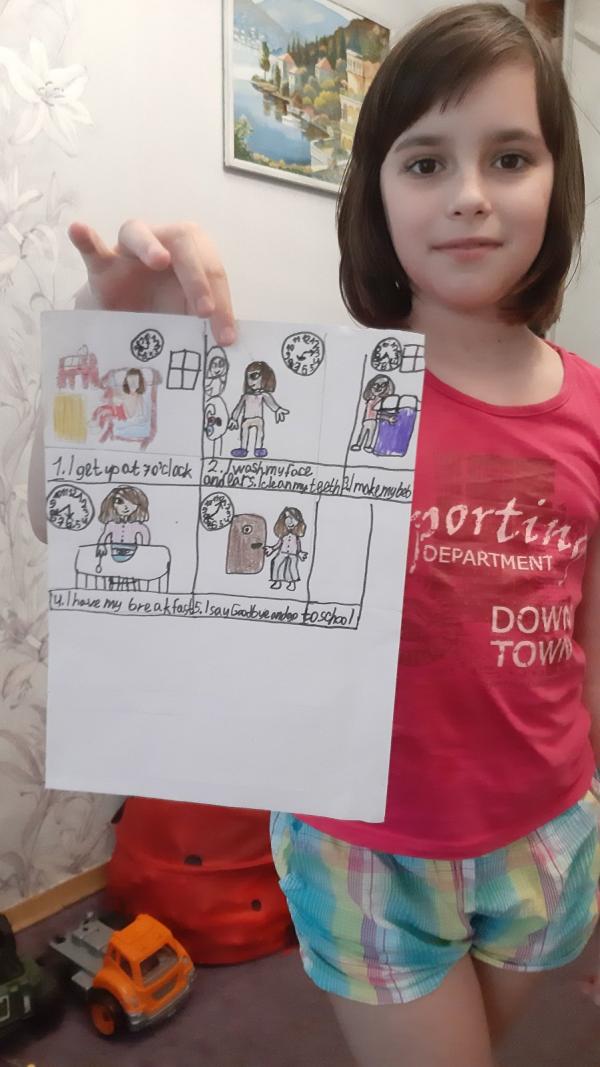 1. I get up at 7 o'clock
2. I wash my face
and ears. I clean my teeth
3. I make my beb
4. I have my breakfast
5. I say Goodbye and go to school
porting
DEPARTMENT
DOWN
TOWN